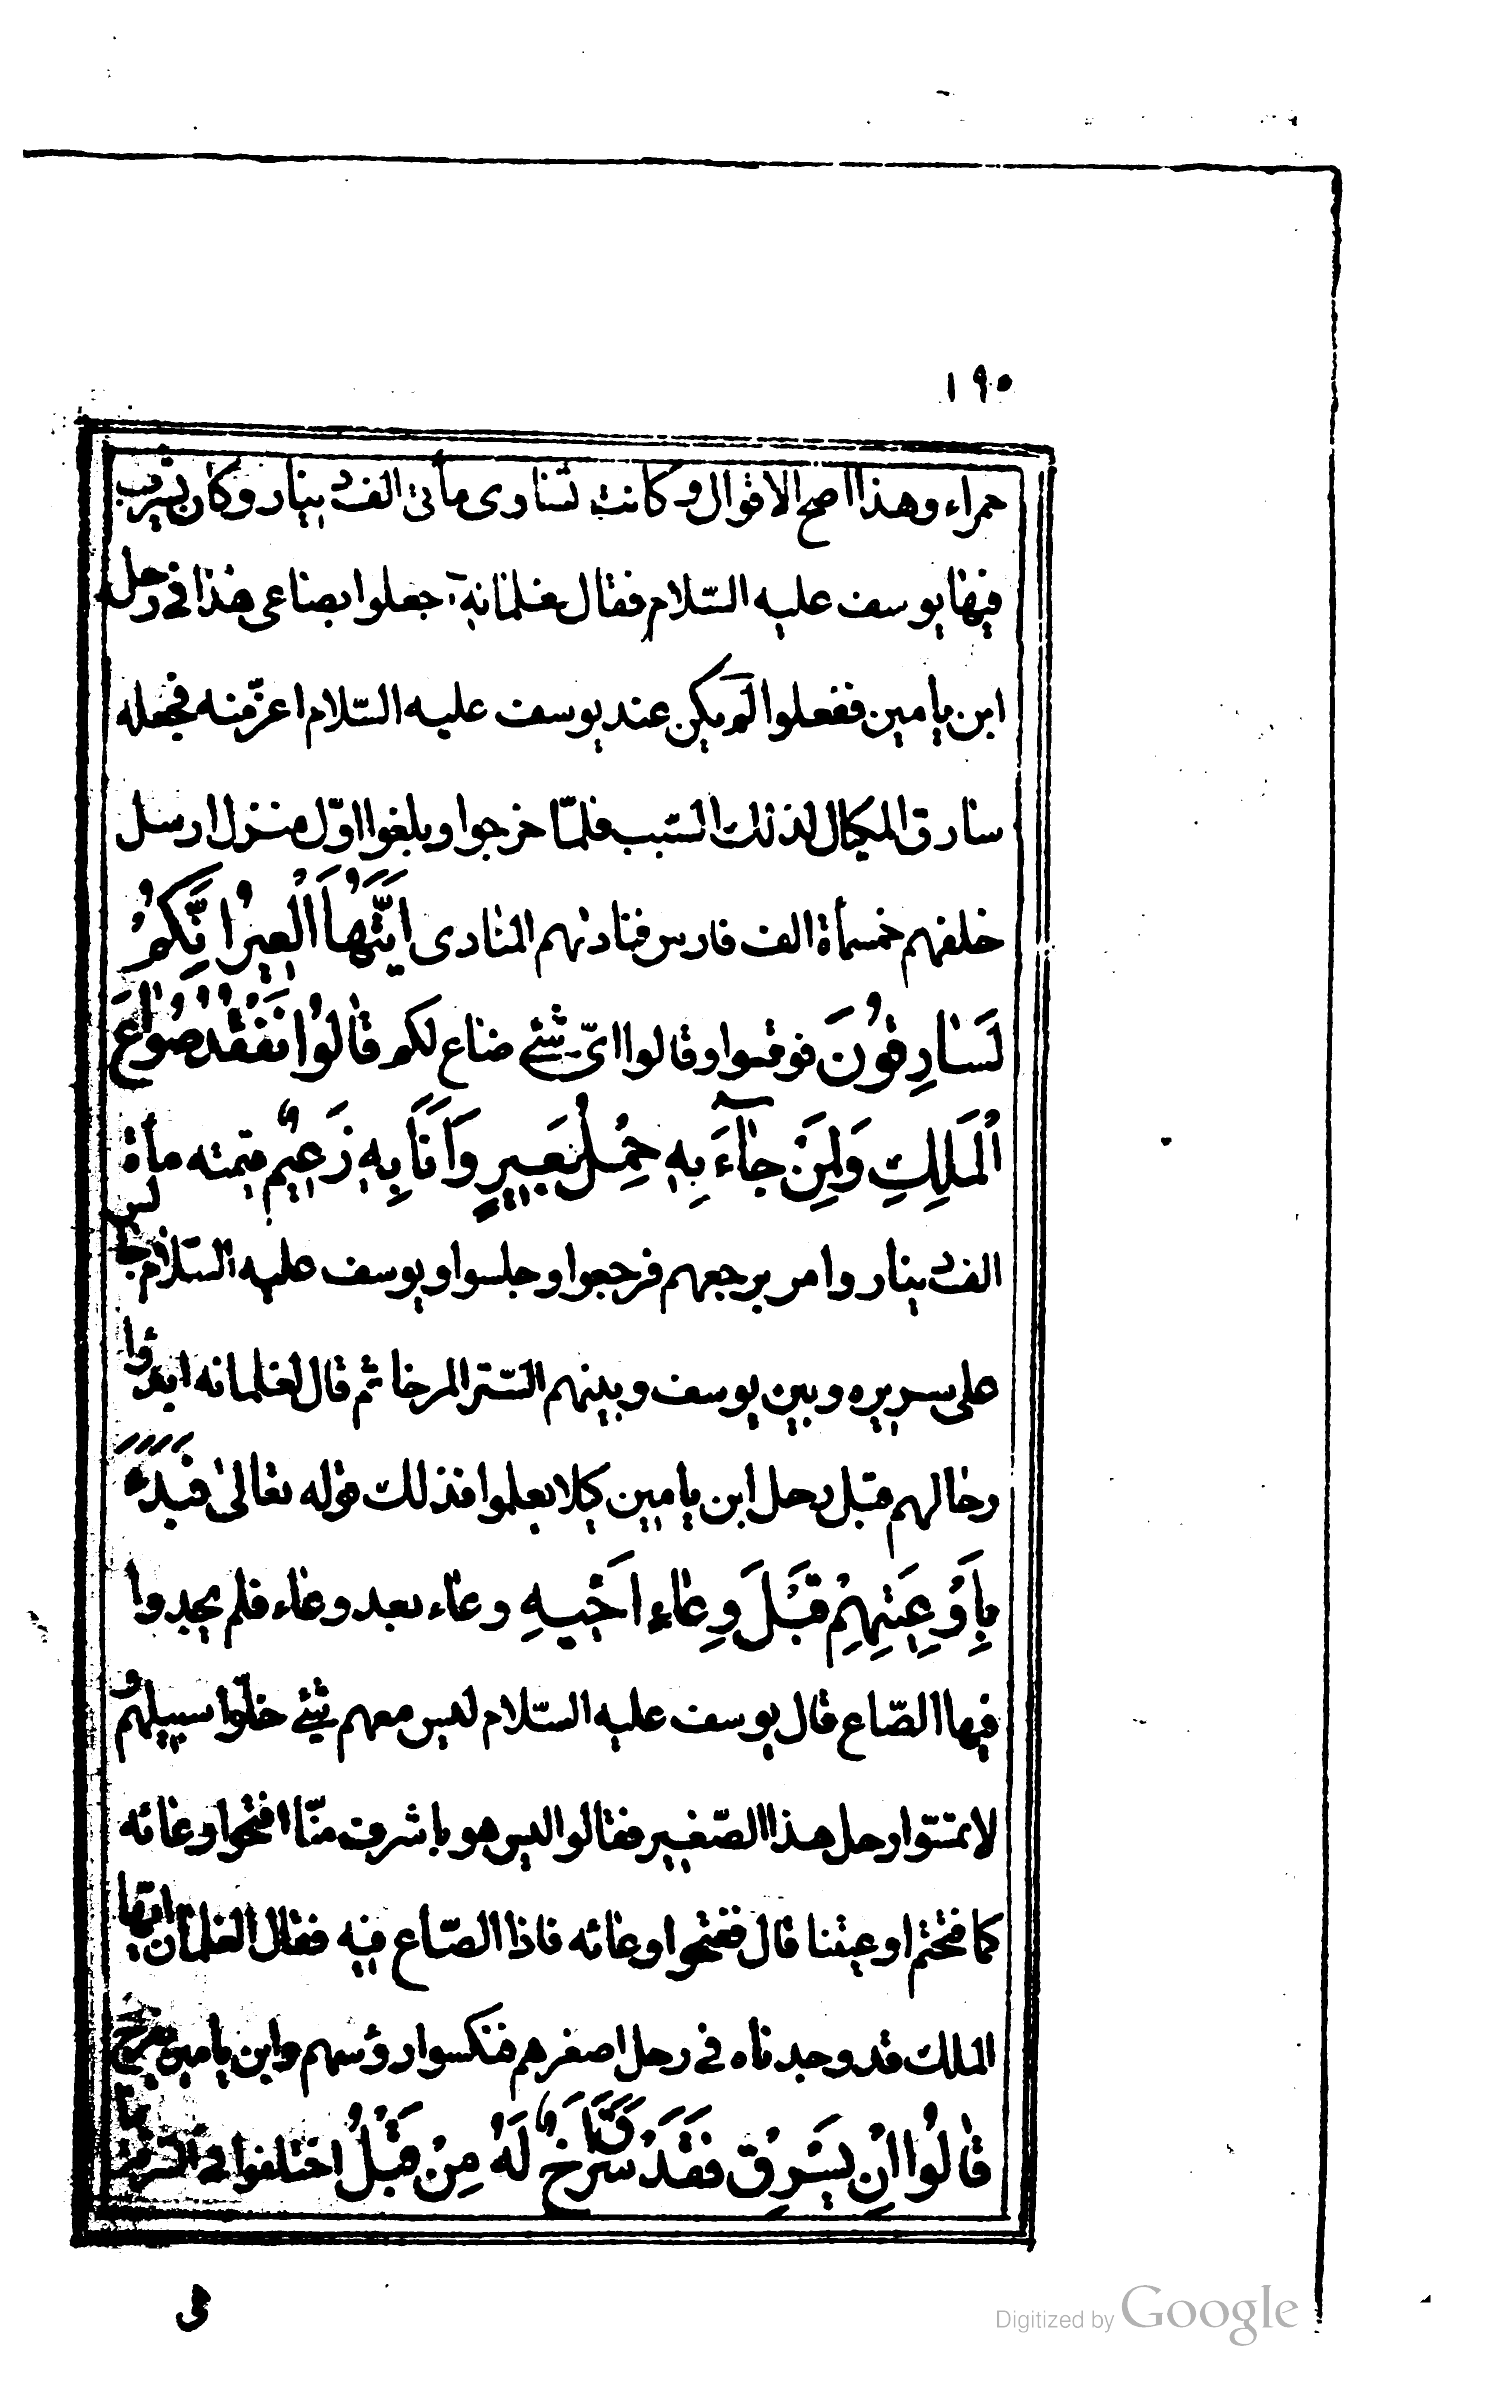 ١٩٥
حمراء وهذا اصح الاقوال وكانت تساوى مأتى الف دينار وكان يشرب
فيها يوسف عليه السّلام فقال لغلمانه اجعلوا بضاعى هذا فى رحل
ابن يامين ففعلوا لم يكن عند يوسف عليه السّلام اعزّ منه فجعله
سارق المكيال لذلك السّبب فلمّا خرجوا وبلغوا اوّل منزل ارسل
خلفهم خمسمأة الف فارس فنادٮهم المنادى اَيَّتُهَا الْعِيرُ اِنَّكُمْ
لَسَارِقُونَ فوقفوا وقالوا اىّ شئ ضاع لكم قَالُوا نَفْقِدُ صُوَاعَ
الْمَلِكِ وَلِمَنْ جَآءَ بِهِ حِمْلُ بَعِيرٍ وَاَنَا بِهِ زَعِيمٌ قيمته مأة
الف دينار وامر برجعهم فرجعوا وجلسوا ويوسف عليه السّلام جالس
على سريره وبين يوسف وبينهم السّتر المرخا ثم قال لغلمانه ابدؤا
رحالهم قبل رحل ابن يامين كيلا يعلموا فذلك قوله تعالى فَبَدَءَ
بِاَوْعِيَتِهِمْ قَبْلَ وِعَاءِ اَخِيهِ وعاء بعد وعاء فلم يجدوا
فيها الصّاع قال يوسف عليه السّلام ليس معهم شئ خلّوا سبيلهم و
لا تمسّوا رحل هذا الصّغير فقالوا ليس هو باشرف منّا افتحوا وعائه
كما فتحتم اوعيتنا قال ففتحوا وعائه فاذا الصّاع فيه فقال الغلمان ايّها
الملك قد وجدناه فى رحل اصغرهم فنكسوا رؤسهم وابن يامين
قَالُوا اِنْ يَسْرِقْ فَقَدْ سَرَقَ اَخٌ لَهُ مِنْ قَبْلُ اختلفوا فى
فى
Digitized by Google